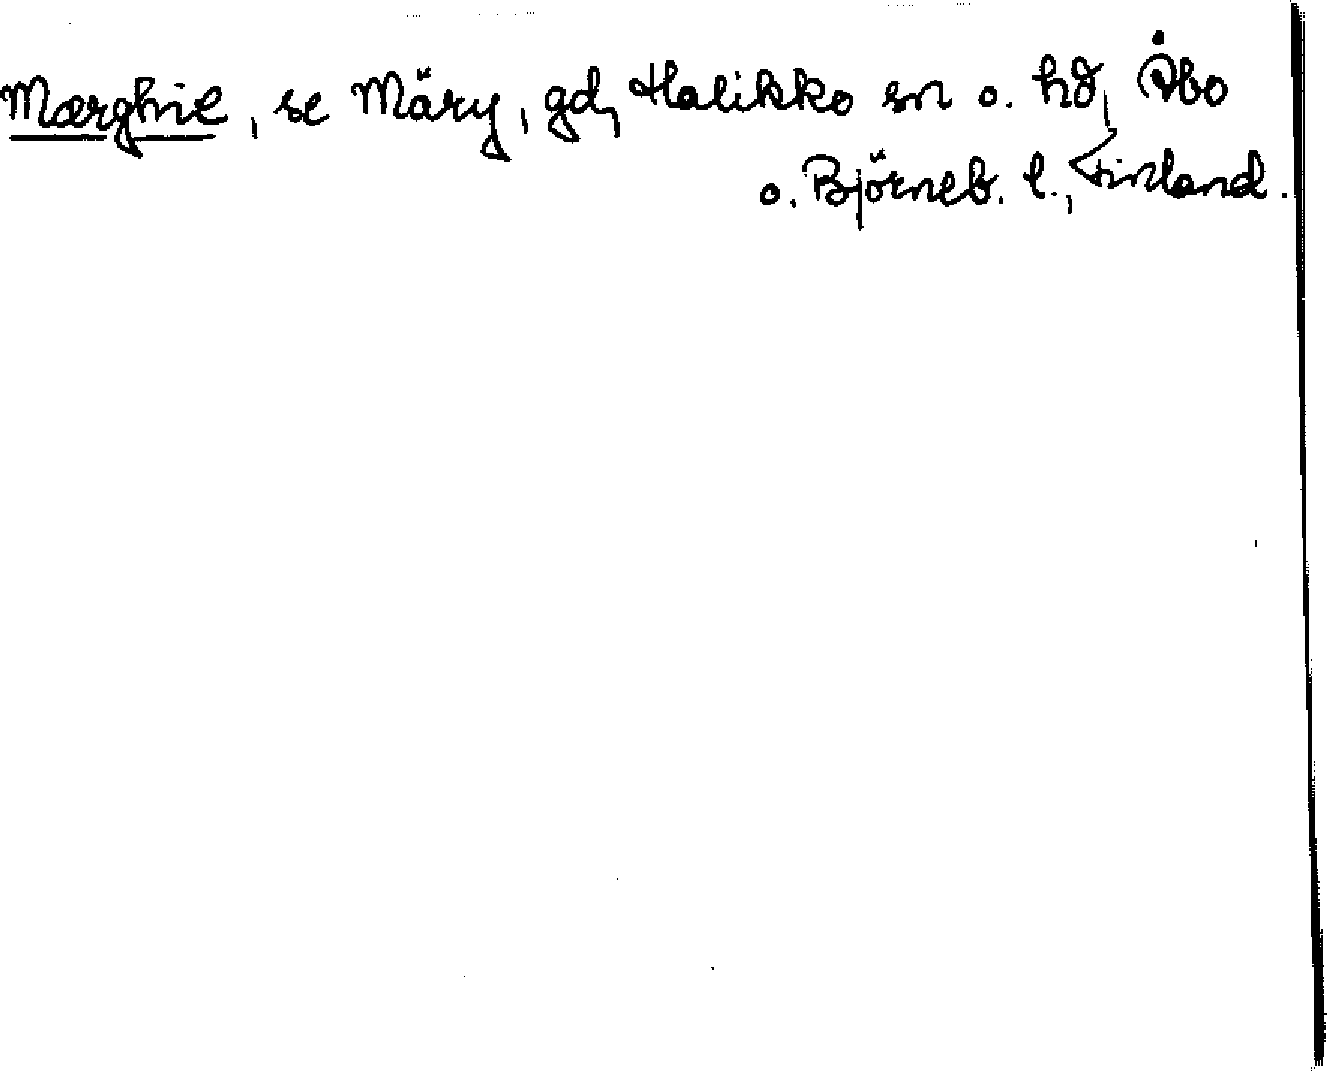 Mærghie, se Märy, gd, Halikko sn o. hd, Åbo
o. Björneb. l., Finland.